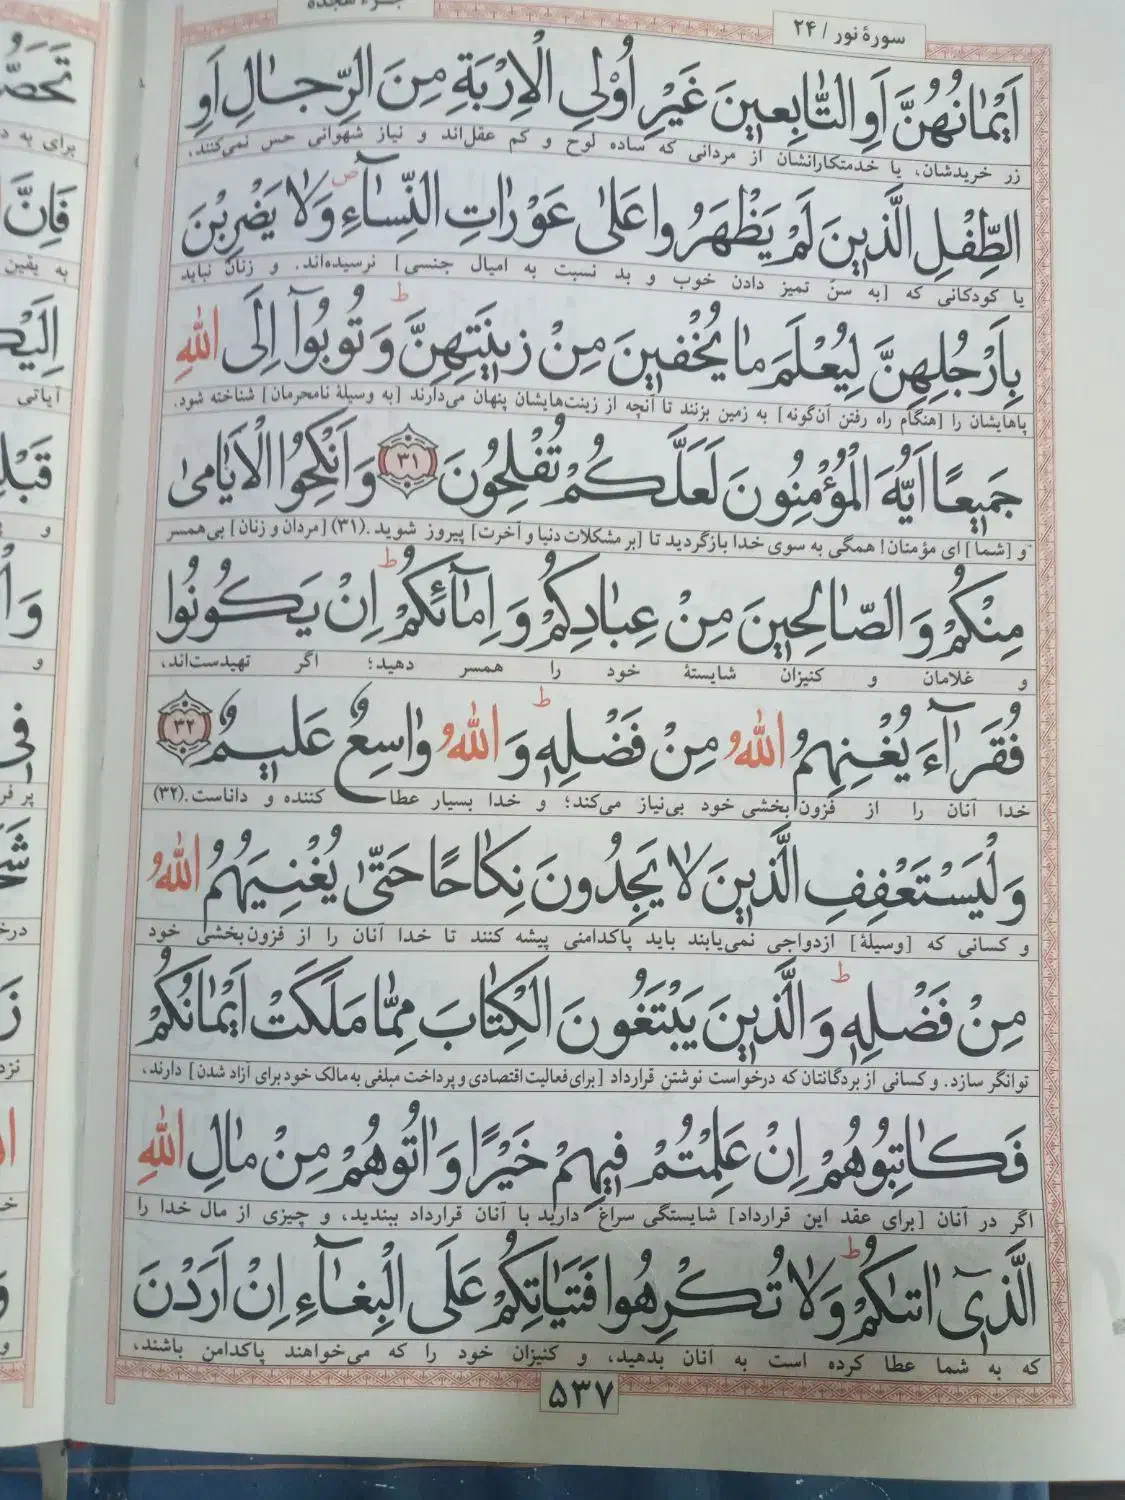 جزء هجده
سورهٔ نور / ۲۴
اَیْمٰانُهُنَّ اَوِ التّٰابِعینَ غَیْرِ اُوْلِی الْاِرْبَةِ مِنَ الرِّجٰالِ اَوِ
زر خریدشان، یا خدمتکارانشان از مردانی که ساده لوح و کم عقل‌اند و نیاز شهوانی حس نمی‌کنند،
الطِّفْلِ الَّذینَ لَمْ یَظْهَرُوا عَلیٰ عَوْرٰاتِ النِّسٰآءِ ص وَلٰا یَضْرِبْنَ
یا کودکانی که [به سنّ تمیز دادن خوب و بد نسبت به امیال جنسی] نرسیده‌اند. و زنان نباید
بِاَرْجُلِهِنَّ لِیُعْلَمَ مٰا یُخْفینَ مِنْ زینَتِهِنَّ ط وَتُوبُوآ اِلَی اللّٰهِ
پاهایشان را [هنگام راه رفتن آن‌گونه] به زمین بزنند تا آنچه از زینت‌هایشان پنهان می‌دارند [به وسیلهٔ نامحرمان] شناخته شود.
جَمیعًا اَیُّهَ الْمُؤْمِنُونَ لَعَلَّکُمْ تُفْلِحُونَ ۳۱ وَاَنْکِحُوا الْاَیٰامیٰ
و [شما] ای مؤمنان! همگی به سوی خدا بازگردید تا [بر مشکلات دنیا و آخرت] پیروز شوید.(۳۱) [مردان و زنان] بی‌همسر
مِنْکُمْ وَالصّٰالِحینَ مِنْ عِبٰادِکُمْ وَاِمٰآئِکُمْ ط اِنْ یَکُونُوا
و غلامان و کنیزان شایستهٔ خود را همسر دهید؛ اگر تهیدست‌اند،
فُقَرٰآءَ یُغْنِهِمُ اللّٰهُ مِنْ فَضْلِهٖ ط وَاللّٰهُ وٰاسِعٌ عَلیمٌ ۳۲
خدا آنان را از فزون‌بخشی خود بی‌نیاز می‌کند؛ و خدا بسیار عطا کننده و داناست.(۳۲)
وَلْیَسْتَعْفِفِ الَّذینَ لٰا یَجِدُونَ نِکٰاحًا حَتّیٰ یُغْنِیَهُمُ اللّٰهُ
و کسانی که [وسیلهٔ] ازدواجی نمی‌یابند باید پاکدامنی پیشه کنند تا خدا آنان را از فزون‌بخشی خود
مِنْ فَضْلِهٖ ط وَالَّذینَ یَبْتَغُونَ الْکِتٰابَ مِمّٰا مَلَکَتْ اَیْمٰانُکُمْ
توانگر سازد. و کسانی از بردگانتان که درخواست نوشتنِ قرارداد [برای فعالیت اقتصادی و پرداخت مبلغی به مالک خود برای آزاد شدن] دارند،
فَکٰاتِبُوهُمْ اِنْ عَلِمْتُمْ فیهِمْ خَیْرًا وَاٰتُوهُمْ مِنْ مٰالِ اللّٰهِ
اگر در آنان [برای عقد این قرارداد] شایستگی سراغ دارید با آنان قرارداد ببندید، و چیزی از مال خدا را
الَّذیٓ اٰتٰاکُمْ ط وَلٰا تُکْرِهُوا فَتَیٰاتِکُمْ عَلَی الْبِغٰآءِ اِنْ اَرَدْنَ
که به شما عطا کرده است به آنان بدهید، و کنیزان خود را که می‌خواهند پاکدامن باشند،
۵۳۷